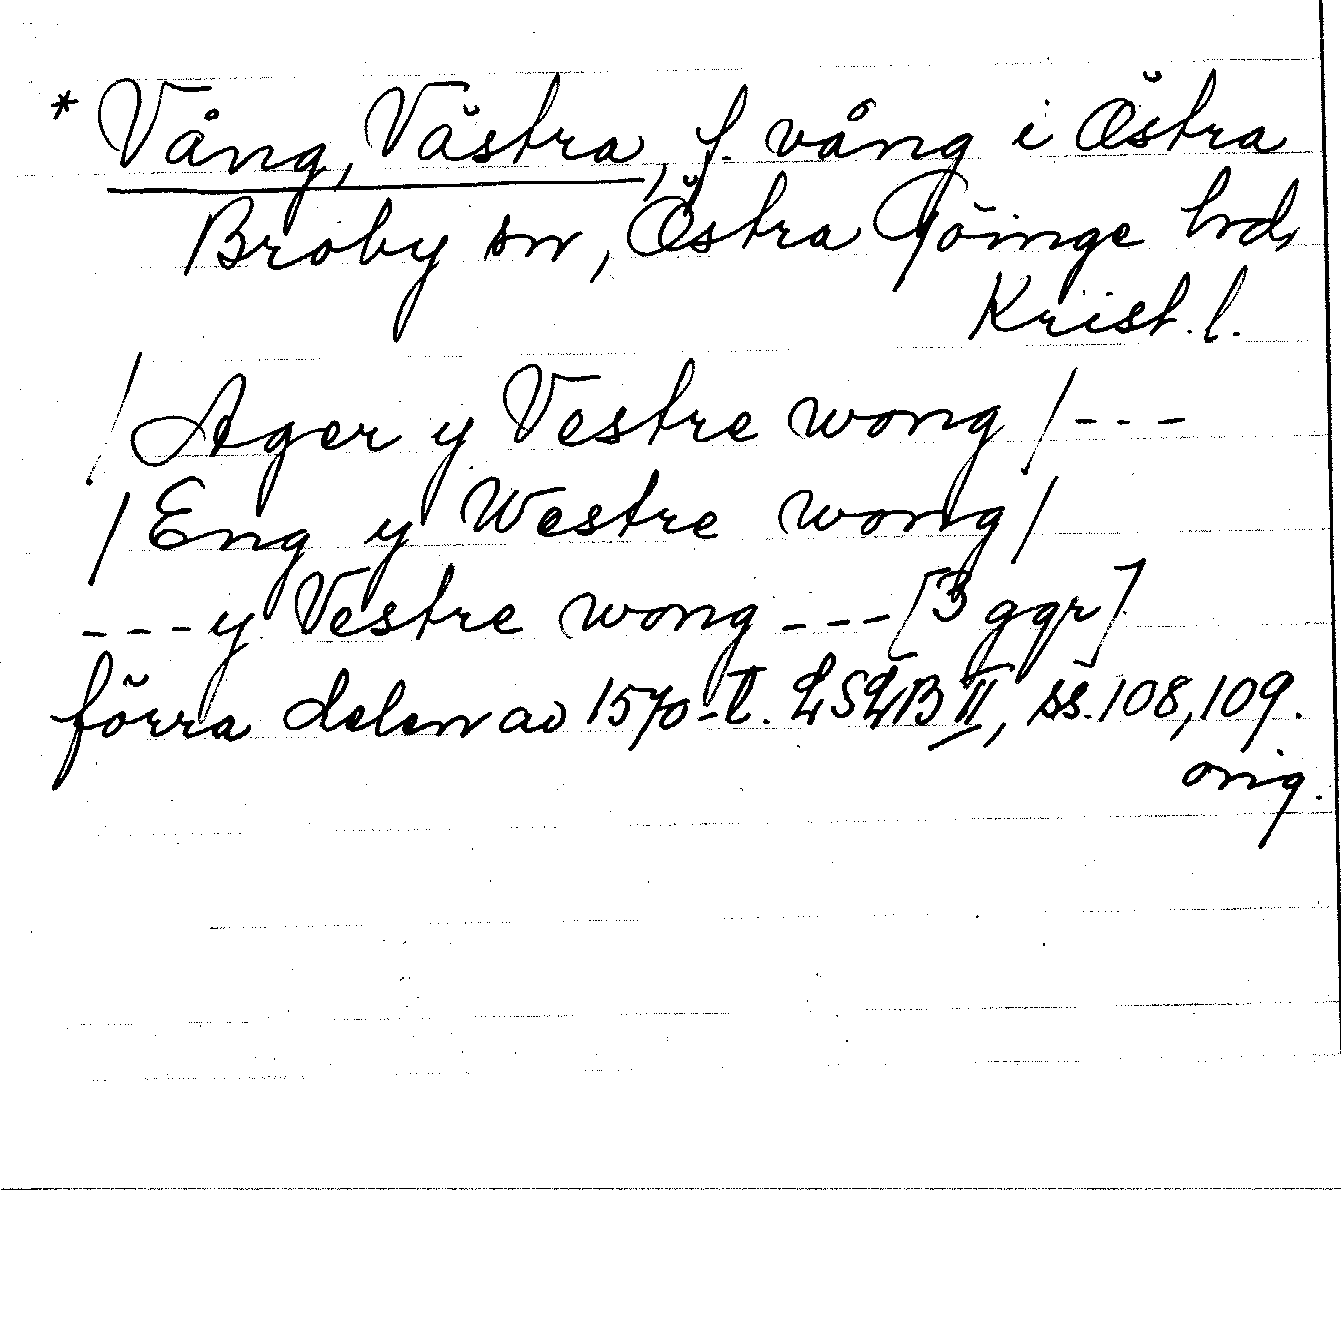 * Vång, Västra, f. vång i Östra
Broby sn, Östra Göinge hd,
Krist. l.
/ Ager y Vestre wong / - - -
/ Eng y Westre wong /
- - - y Vestre wong - - - [3 ggr]
förra delen av 1570-t. LSLB II, ss. 108, 109.
orig.